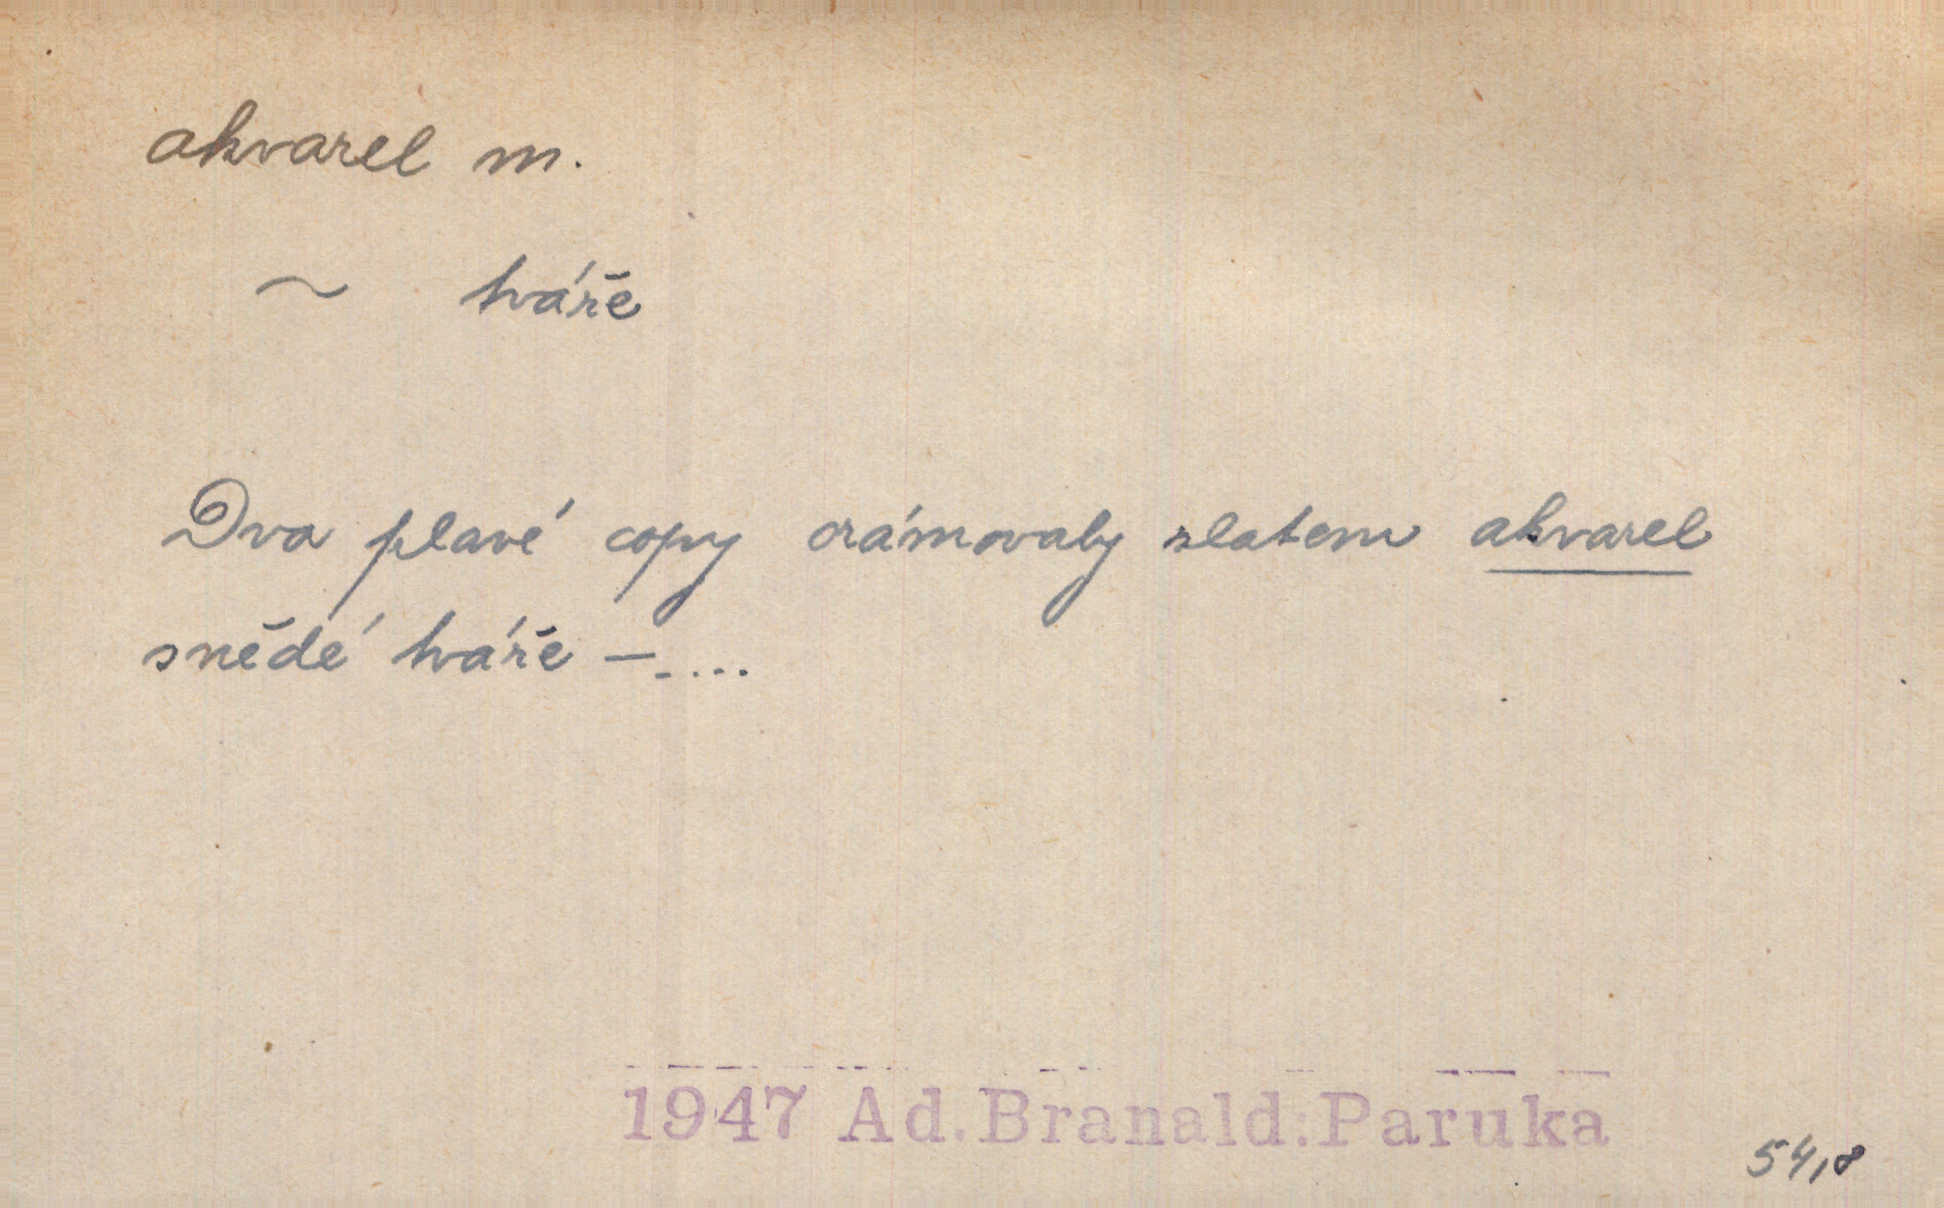 akvarel m.
~ tváře
Dva plavé copy orámovaly zlatem akvarel
snědé tváře –....
1947 Ad. Branald: Paruka
54,8